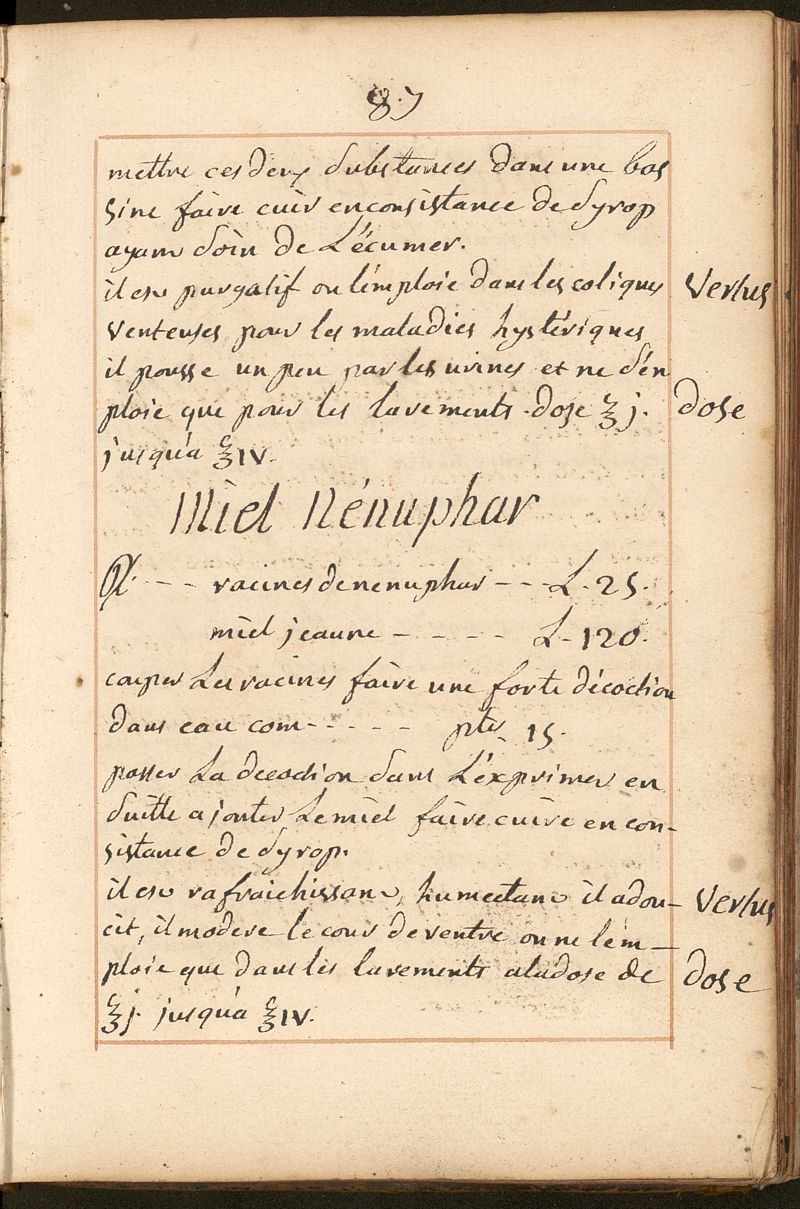 87
mettre ces deux substances dans une bas
sine faire cuir en consistance de syrop
ayant soin de L'écumer.
il est purgatif on l'émploie dans les coliques vertus
venteuses, pour les maladies hystériques
il pousse un peu par les urines et ne s'én
ploie que pour les lavements. dose ℥ j. dose
jusqu'a ℥ IV.
Miel Nénuphar
♃. - - racines de nenuphar - - - L. 25.
miel jeaune - - - - L - 120.
couper Les racines faire une forte décoction
dans eau com - - - - - ptes 15.
passer La decoction dans L'éxprimer en
suitte ajouter Le miel faire cuire en con-
sistance de syrop.
il est rafraichissant, humectant il adou- vertus
cit, il modere le cour de ventre on ne l'ém-
ploie que dans les lavements a la dose de dose
℥ j. jusqu'a ℥ IV.